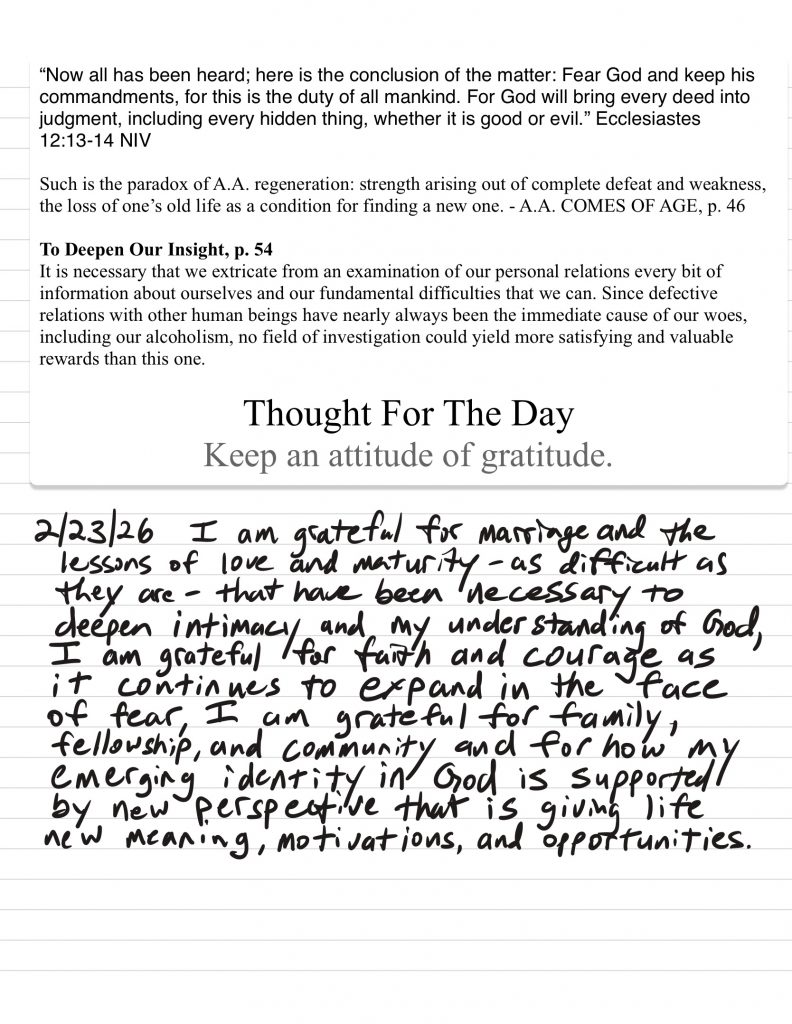 “Now all has been heard; here is the conclusion of the matter: Fear God and keep his
commandments, for this is the duty of all mankind. For God will bring every deed into
judgment, including every hidden thing, whether it is good or evil.” Ecclesiastes
12:13-14 NIV
Such is the paradox of A.A. regeneration: strength arising out of complete defeat and weakness,
the loss of one’s old life as a condition for finding a new one. - A.A. COMES OF AGE, p. 46
To Deepen Our Insight, p. 54
It is necessary that we extricate from an examination of our personal relations every bit of
information about ourselves and our fundamental difficulties that we can. Since defective
relations with other human beings have nearly always been the immediate cause of our woes,
including our alcoholism, no field of investigation could yield more satisfying and valuable
rewards than this one.
Thought For The Day
Keep an attitude of gratitude.
2/23/26 I am grateful for marriage and the
lessons of love and maturity - as difficult as
they are - that have been necessary to
deepen intimacy and my understanding of God,
I am grateful for faith and courage as
it continues to expand in the face
of fear, I am grateful for family,
fellowship, and community and for how my
emerging identity in God is supported
by new perspective that is giving life
new meaning, motivations, and opportunities.